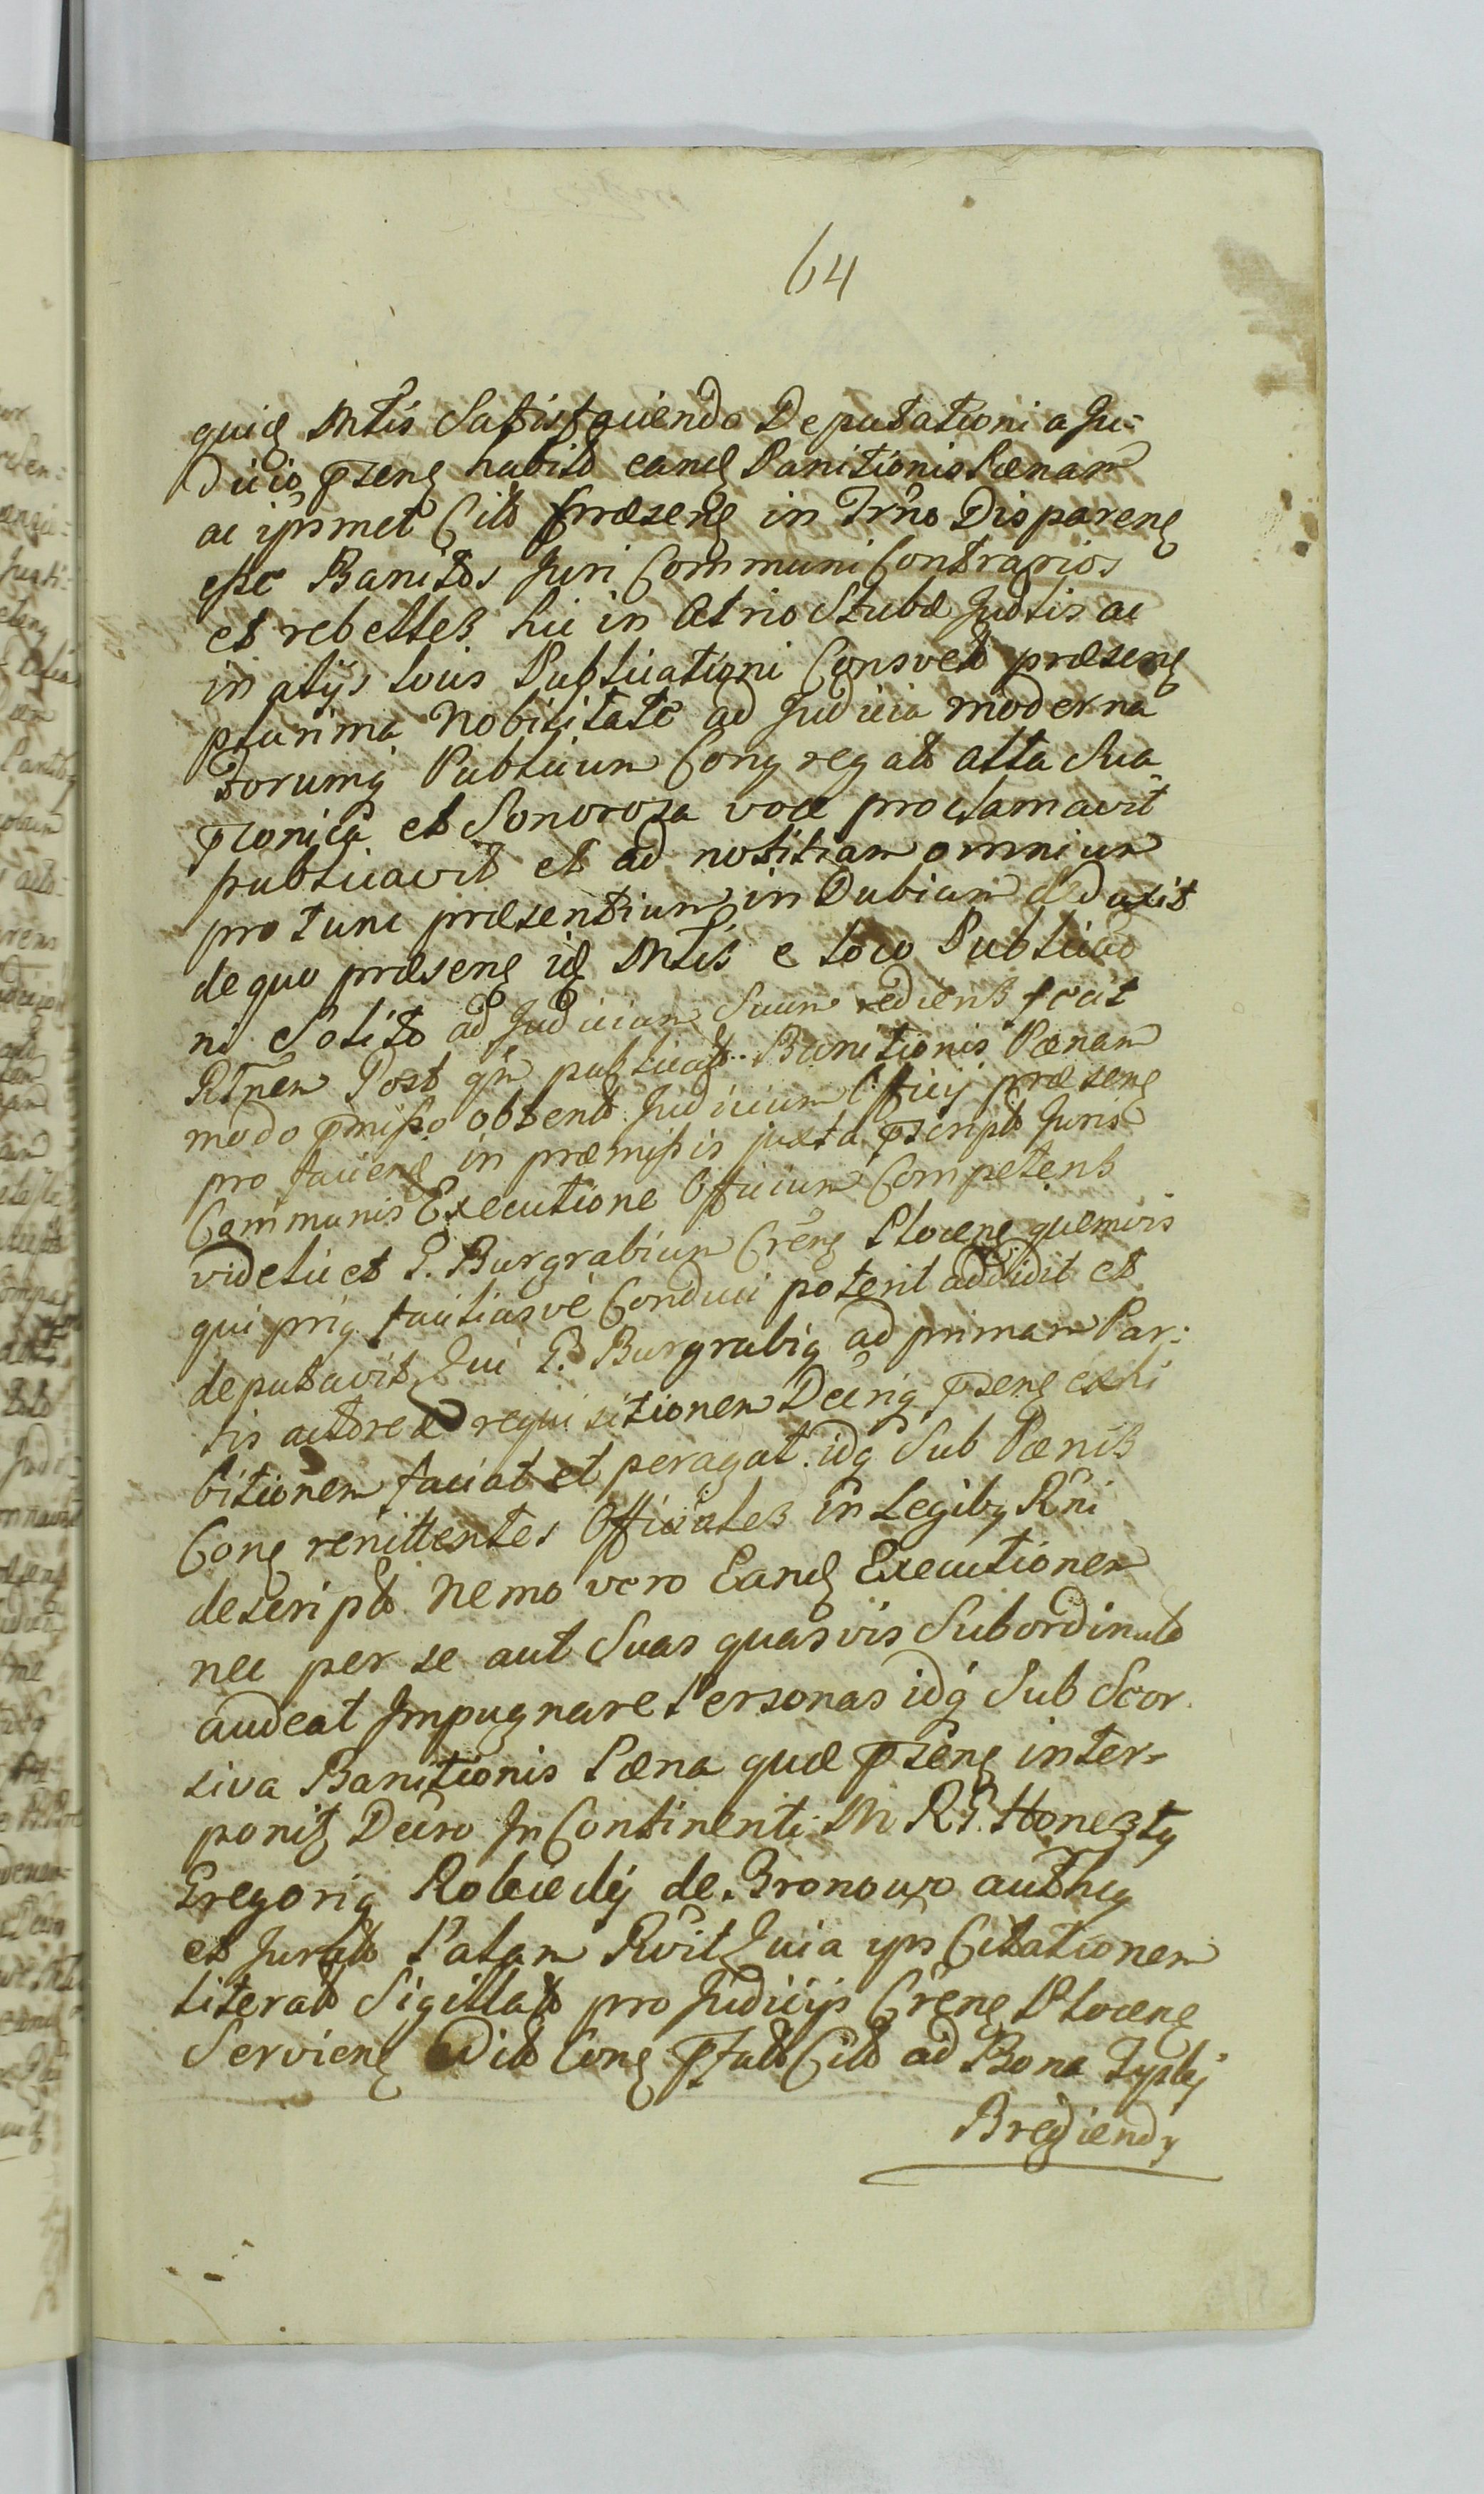 64
quid Mtis Satisfaciendo Deputationi a Ju:
dicio pñseñ habito eand Banitionis Pænam
ac ipsmet Citõ præseñ in Trño Dispareñ
esse Banitos Juri Communi Contrarios
et rebelles hic in Atrio Stubæ Judtis ac
in alijs locis Publicationi Consvetõ præseñ
plurima Nobilitate ad Judicia moderna
Forumq Publicum Congregatõ alta Sua
pconica et Sonorosa voce proclamavit
publicavit et ad notitiam omnium
pro tunc præsentium in Dubium deduxit
de quo præseñ id Mtis e loco Publicao
ni Solito ad Judicium Suum rediens fecit
Rtñem Post qm publicatõ Banitionis Pænam
modo pmisso obtentõ Judicium Officij præseñ
pro facieñ in præmissis juxta pscriptõ Juris
Communis Executione Officium Competens
videlicet G. Burgrabium Creñ Ploceñ quemvis
qui priq facliusve Conduci poterit addidit et
deputavit Qui G. Burgrabiq ad primam Par:
tis actoreæ requisitionem Decriq pseñ exhi
bitionem faciat et peragat idq Sub Pænis
Coñ renittentes Officiales in Legibq Rñi
descriptõ Nemo vero Eand Executionem
nec per se aut Suas quasvis Subordinatõ
audeat Impugnare Personas idq Sub Seor
siva Banitionis Pæna quæ pseñ inter-
ponitq Decro In Continenti M RP. Honestq
Gregoriq de Bronowo authq
et Juratõ Palam Rvit Quia ips Citationem
literatõ Sigillatõ pro Judicijs Creñ Ploceñ
Servieñ Editõ Coñ pfatõ Citõ ad Bona
Bregiendq